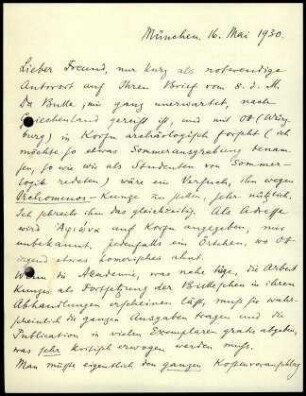 München, 16. Mai 1930.
Lieber Freund, nur kurz als notwendige
Antwort auf Ihren Brief vom 8. d. M.
Da Bulle, mir ganz unerwartet, nach
Griechenland gereist ist, und mit Ob (Würz
burg) in Korfu archäologisch forscht (ich
möchte so etwas Sommerausgrabung benam-
sen, so wie wir als Studenten von Sommer-
logik redeten) wäre ein Versuch, ihn wegen
Orchomenos - Kunze zu sehen, sehr nützlich.
Ich schreib ihm das gleichzeitig. Als Adresse
wird auf Korfu angegeben, mir
unbekannt, jedenfalls ein Örtchen, wo Ob
irgend etwas homerisches ahnt.
Wenn die Akademie, was nahe läge, die Arbeit
Kunzes als Fortsetzung der Bulleschen in ihren
Abhandlungen erscheinen läßt, muß sie wahr-
scheinlich die ganzen Ausgaben tragen und die
Publication in vielen Exemplaren gratis abgeben,
was sehr kritisch erwogen werden muß.
Man müßte eigentlich den ganzen Kostenvoranschlag